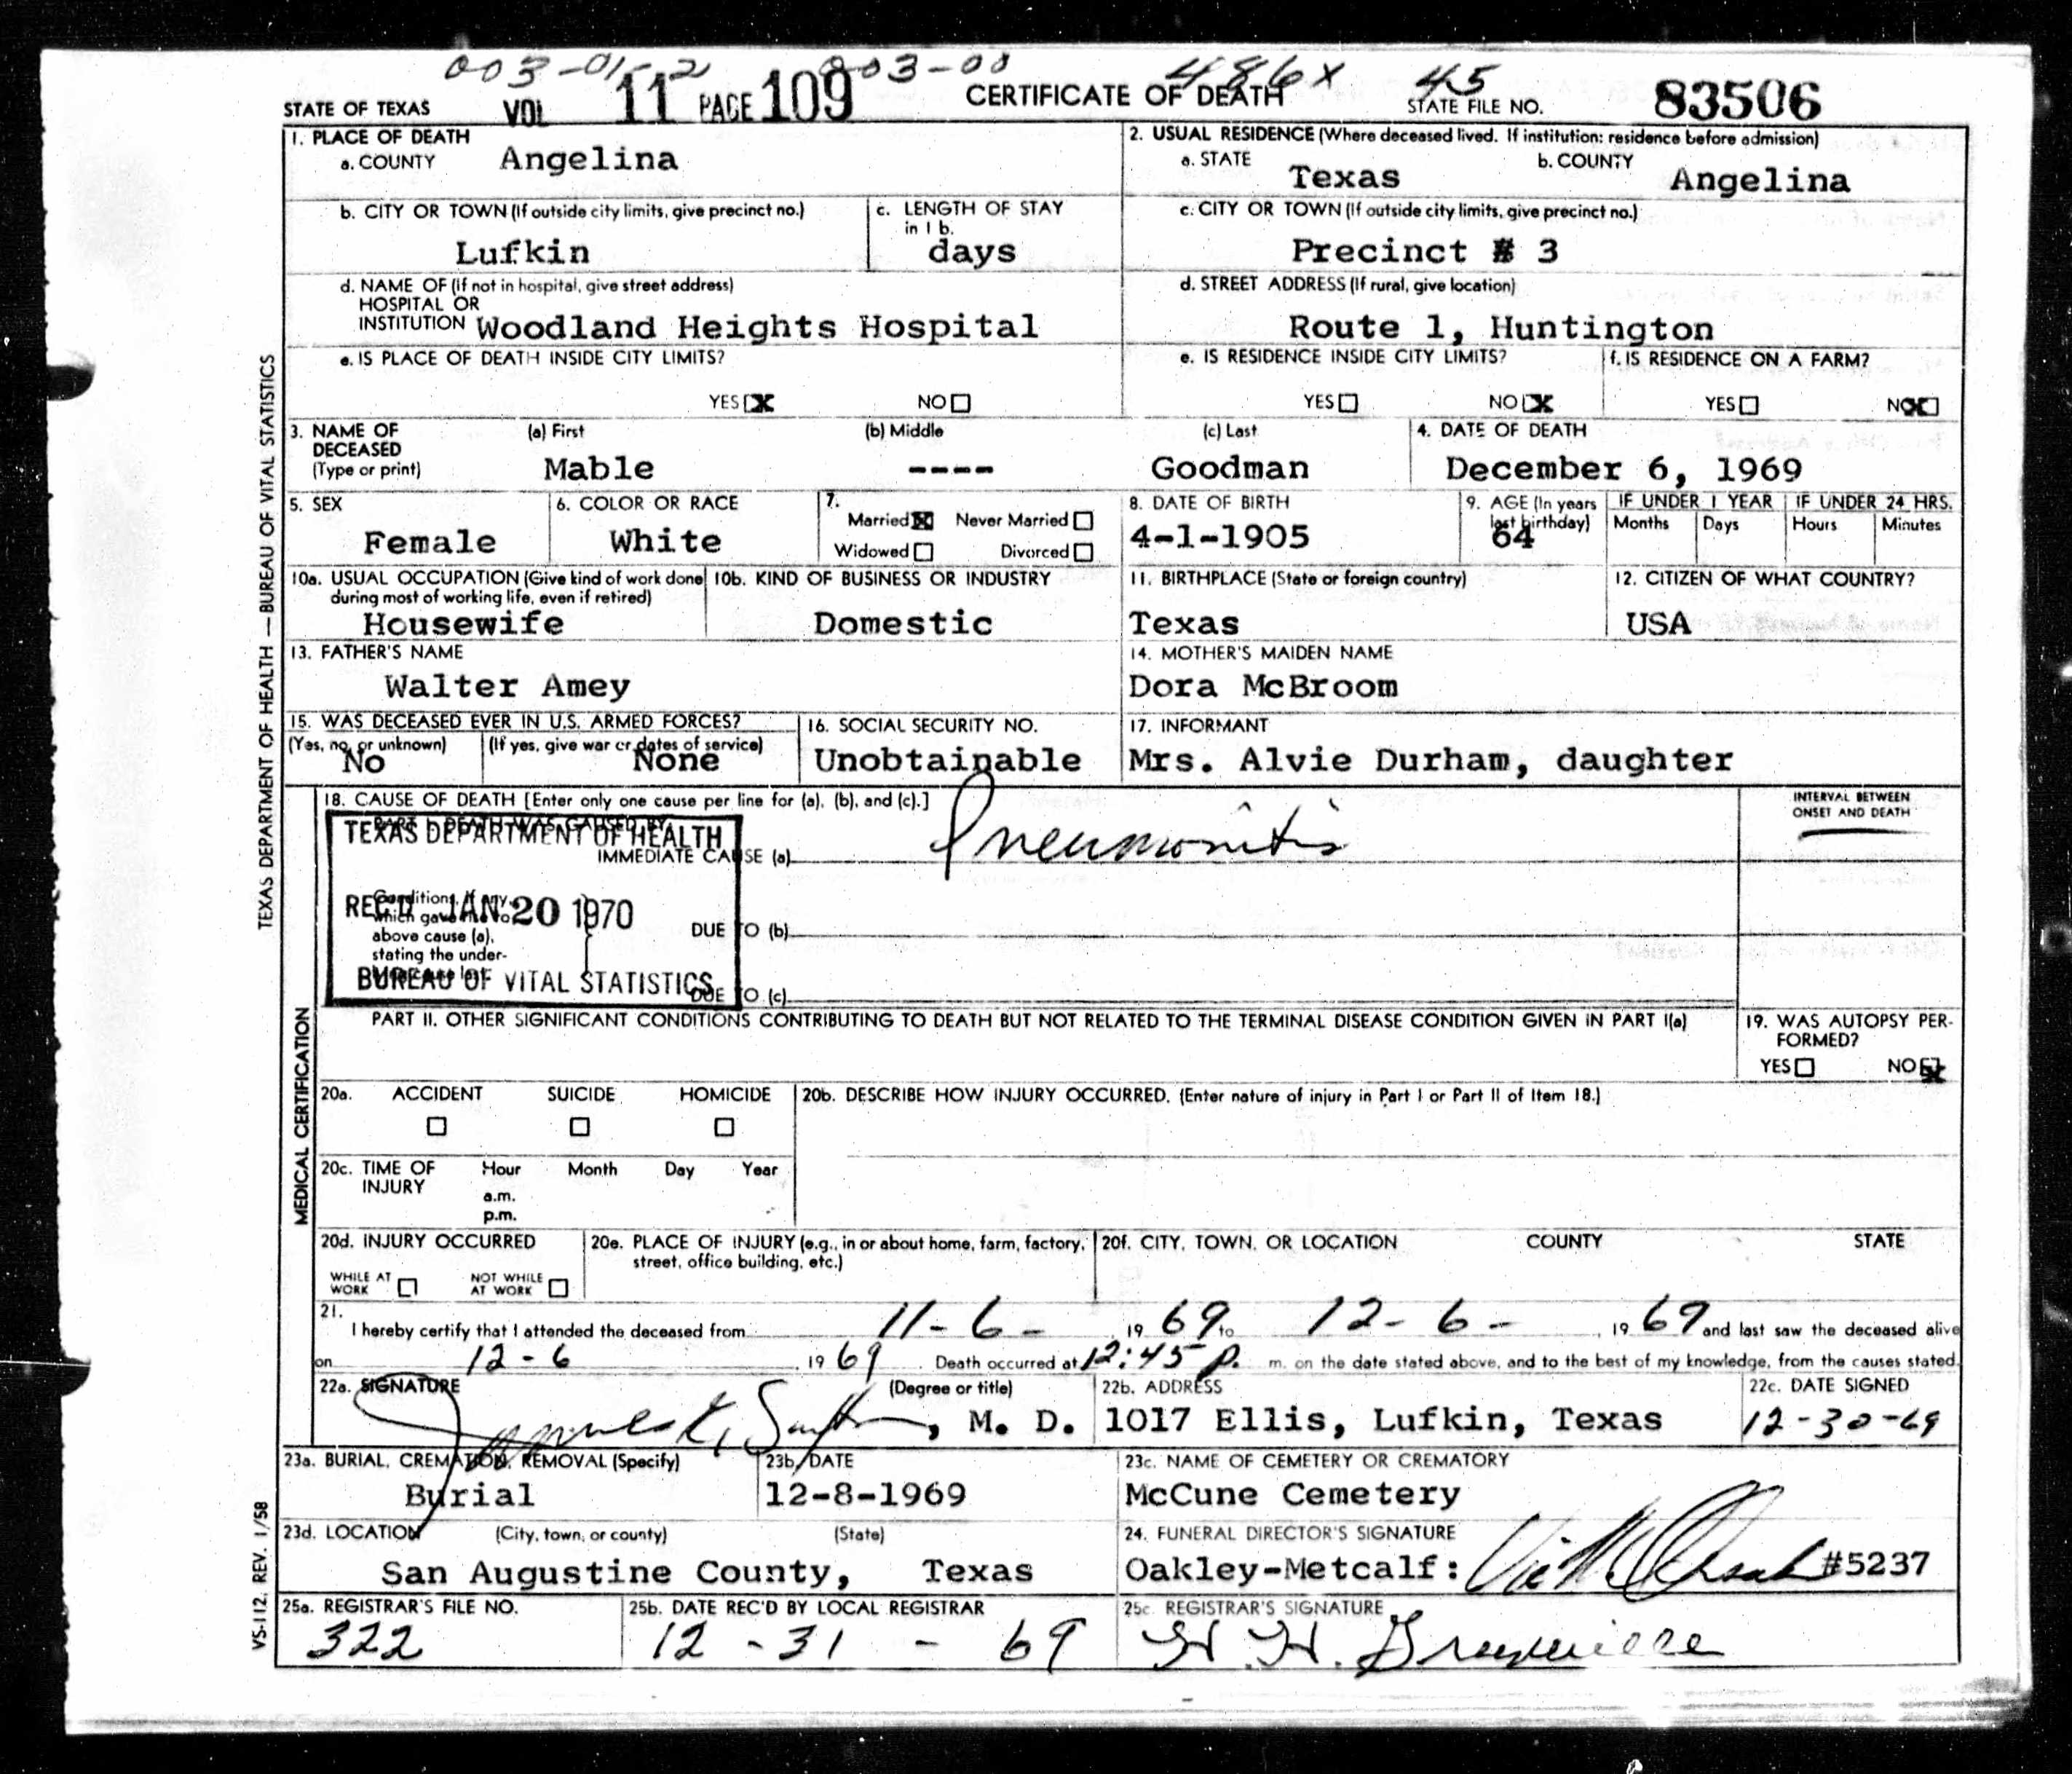 003-01-2 003-00 486x 45
STATE OF TEXAS VOL 11 PAGE 109 CERTIFICATE OF DEATH STATE FILE NO. 83506
1. PLACE OF DEATH
a. COUNTY Angelina
2. USUAL RESIDENCE (Where deceased lived. If institution: residence before admission)
a. STATE Texas b. COUNTY Angelina
b. CITY OR TOWN (If outside city limits, give precinct no.)
Lufkin
c. LENGTH OF STAY
in 1 b.
days
c. CITY OR TOWN (If outside city limits, give precinct no.)
Precinct # 3
d. NAME OF (If not in hospital, give street address)
HOSPITAL OR
INSTITUTION Woodland Heights Hospital
d. STREET ADDRESS (If rural, give location)
Route 1, Huntington
e. IS PLACE OF DEATH INSIDE CITY LIMITS?
YES X NO
e. IS RESIDENCE INSIDE CITY LIMITS?
YES NO X
f. IS RESIDENCE ON A FARM?
YES NO X
3. NAME OF
DECEASED
(Type or print)
(a) First (b) Middle (c) Last
Mable ---- Goodman
4. DATE OF DEATH
December 6, 1969
5. SEX
Female
6. COLOR OR RACE
White
7.
Married X Never Married
Widowed Divorced
8. DATE OF BIRTH
4-1-1905
9. AGE (In years
last birthday)
64
IF UNDER 1 YEAR IF UNDER 24 HRS.
Months Days Hours Minutes
10a. USUAL OCCUPATION (Give kind of work done
during most of working life, even if retired)
Housewife
10b. KIND OF BUSINESS OR INDUSTRY
Domestic
11. BIRTHPLACE (State or foreign country)
Texas
12. CITIZEN OF WHAT COUNTRY?
USA
13. FATHER'S NAME
Walter Amey
14. MOTHER'S MAIDEN NAME
Dora McBroom
15. WAS DECEASED EVER IN U.S. ARMED FORCES?
(Yes, no, or unknown) (If yes, give war or dates of service)
No None
16. SOCIAL SECURITY NO.
Unobtainable
17. INFORMANT
Mrs. Alvie Durham, daughter
18. CAUSE OF DEATH [Enter only one cause per line for (a), (b), and (c).]
PART I. DEATH WAS CAUSED BY:
IMMEDIATE CAUSE (a) Pneumonitis
INTERVAL BETWEEN
ONSET AND DEATH
TEXAS DEPARTMENT OF HEALTH
REC'D JAN 20 1970
BUREAU OF VITAL STATISTICS
Conditions, if any,
which gave rise to
above cause (a),
stating the under-
lying cause last.
DUE TO (b)
DUE TO (c)
PART II. OTHER SIGNIFICANT CONDITIONS CONTRIBUTING TO DEATH BUT NOT RELATED TO THE TERMINAL DISEASE CONDITION GIVEN IN PART I(a)
19. WAS AUTOPSY PER-
FORMED?
YES NO X
20a. ACCIDENT SUICIDE HOMICIDE
20b. DESCRIBE HOW INJURY OCCURRED. (Enter nature of injury in Part I or Part II of Item 18.)
20c. TIME OF
INJURY
Hour Month Day Year
a.m.
p.m.
20d. INJURY OCCURRED
WHILE AT
WORK
NOT WHILE
AT WORK
20e. PLACE OF INJURY (e.g., in or about home, farm, factory,
street, office building, etc.)
20f. CITY, TOWN, OR LOCATION COUNTY STATE
21.
I hereby certify that I attended the deceased from 11-6- , 19 69 to 12-6- , 19 69 and last saw the deceased alive
on 12-6 , 19 69 . Death occurred at 12:45 p. m. on the date stated above, and to the best of my knowledge, from the causes stated.
22a. SIGNATURE (Degree or title)
, M. D.
22b. ADDRESS
1017 Ellis, Lufkin, Texas
22c. DATE SIGNED
12-30-69
23a. BURIAL, CREMATION, REMOVAL (Specify)
Burial
23b. DATE
12-8-1969
23c. NAME OF CEMETERY OR CREMATORY
McCune Cemetery
23d. LOCATION (City, town, or county) (State)
San Augustine County, Texas
24. FUNERAL DIRECTOR'S SIGNATURE
Oakley-Metcalf: #5237
25a. REGISTRAR'S FILE NO.
322
25b. DATE REC'D BY LOCAL REGISTRAR
12-31-69
25c. REGISTRAR'S SIGNATURE
TEXAS DEPARTMENT OF HEALTH — BUREAU OF VITAL STATISTICS
MEDICAL CERTIFICATION
VS-112, REV. 1/58